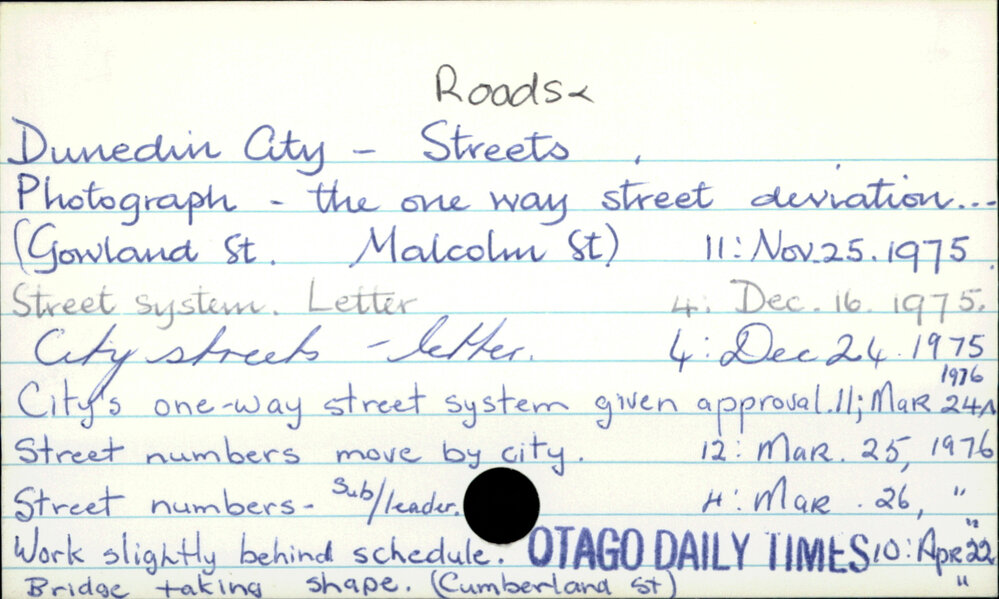 Roads
Dunedin City - Streets
Photograph - the one way street deviation...
(Gowland St. Malcolm St) 11: Nov. 25. 1975
Street system. Letter 4: Dec. 16. 1975.
City streets - letter. 4: Dec 24. 1975
City's one-way street system given approval. 11; Mar 24 ʌ 1976
Street numbers move by city. 12: Mar. 25, 1976
Street numbers - Sub/leader. 4: Mar. 26, "
Work slightly behind schedule. OTAGO DAILY TIMES 10: Apr 22 "
Bridge taking shape. (Cumberland St) "